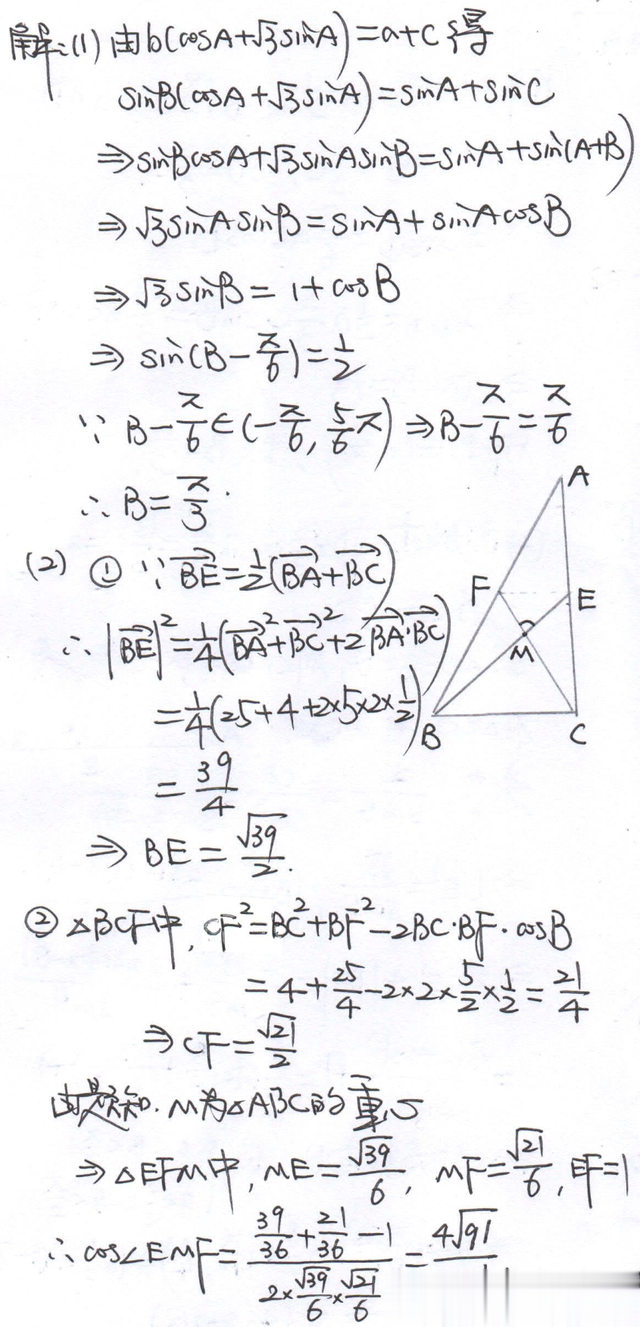 解:(1) 由b(cosA+√3sinA)=a+c得
sinB(cosA+√3sinA)=sinA+sinC
⇒sinBcosA+√3sinAsinB=sinA+sin(A+B)
⇒√3sinAsinB=sinA+sinAcosB
⇒√3sinB=1+cosB
⇒sin(B-π/6)=1/2
∵B-π/6∈(-π/6,5/6π)⇒B-π/6=π/6
∴B=π/3.
A
(2) ① ∵BE→=1/2(BA→+BC→)
F E
∴|BE→|²=1/4(BA→²+BC→²+2BA→·BC→)
M
=1/4(25+4+2×5×2×1/2)
B C
=39/4
⇒BE=√39/2.
② △BCF中,CF²=BC²+BF²-2BC·BF·cosB
=4+25/4-2×2×5/2×1/2=21/4
⇒CF=√21/2
由题知.M为△ABC的重心
⇒△EFM中,ME=√39/6,MF=√21/6,EF=1
∴cos∠EMF=(39/36+21/36-1)/(2×√39/6×√21/6)=4√91/